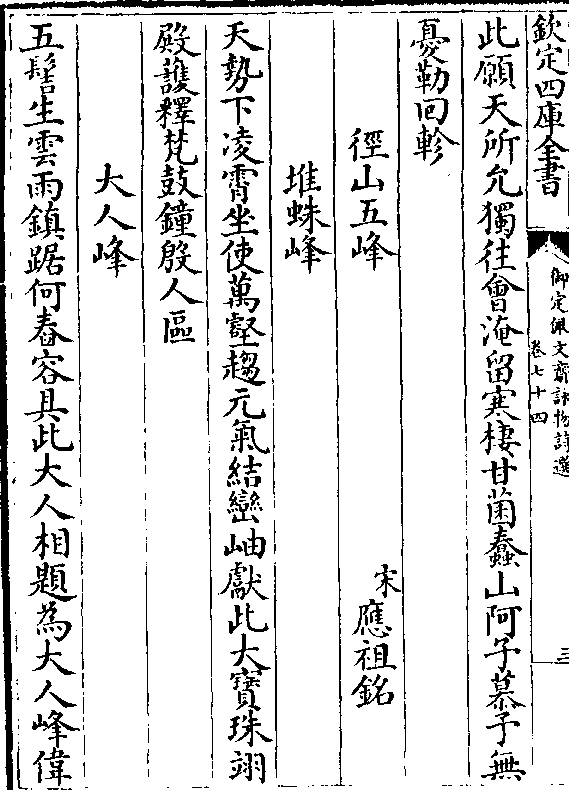 欽定四庫全書
御定佩文齋詠物詩選
卷七十四
三
此願天所允獨往會淹留寒棲甘菌蠢山阿子慕予無
憂勒回軫
徑山五峰
宋應祖銘
堆蛛峰
天勢下凌霄坐使萬壑趨元氣結巒岫獻此大寳珠翊
殿護釋梵鼓鐘殷人區
大人峰
五髻生雲雨鎮踞何舂容具此大人相題為大人峰偉